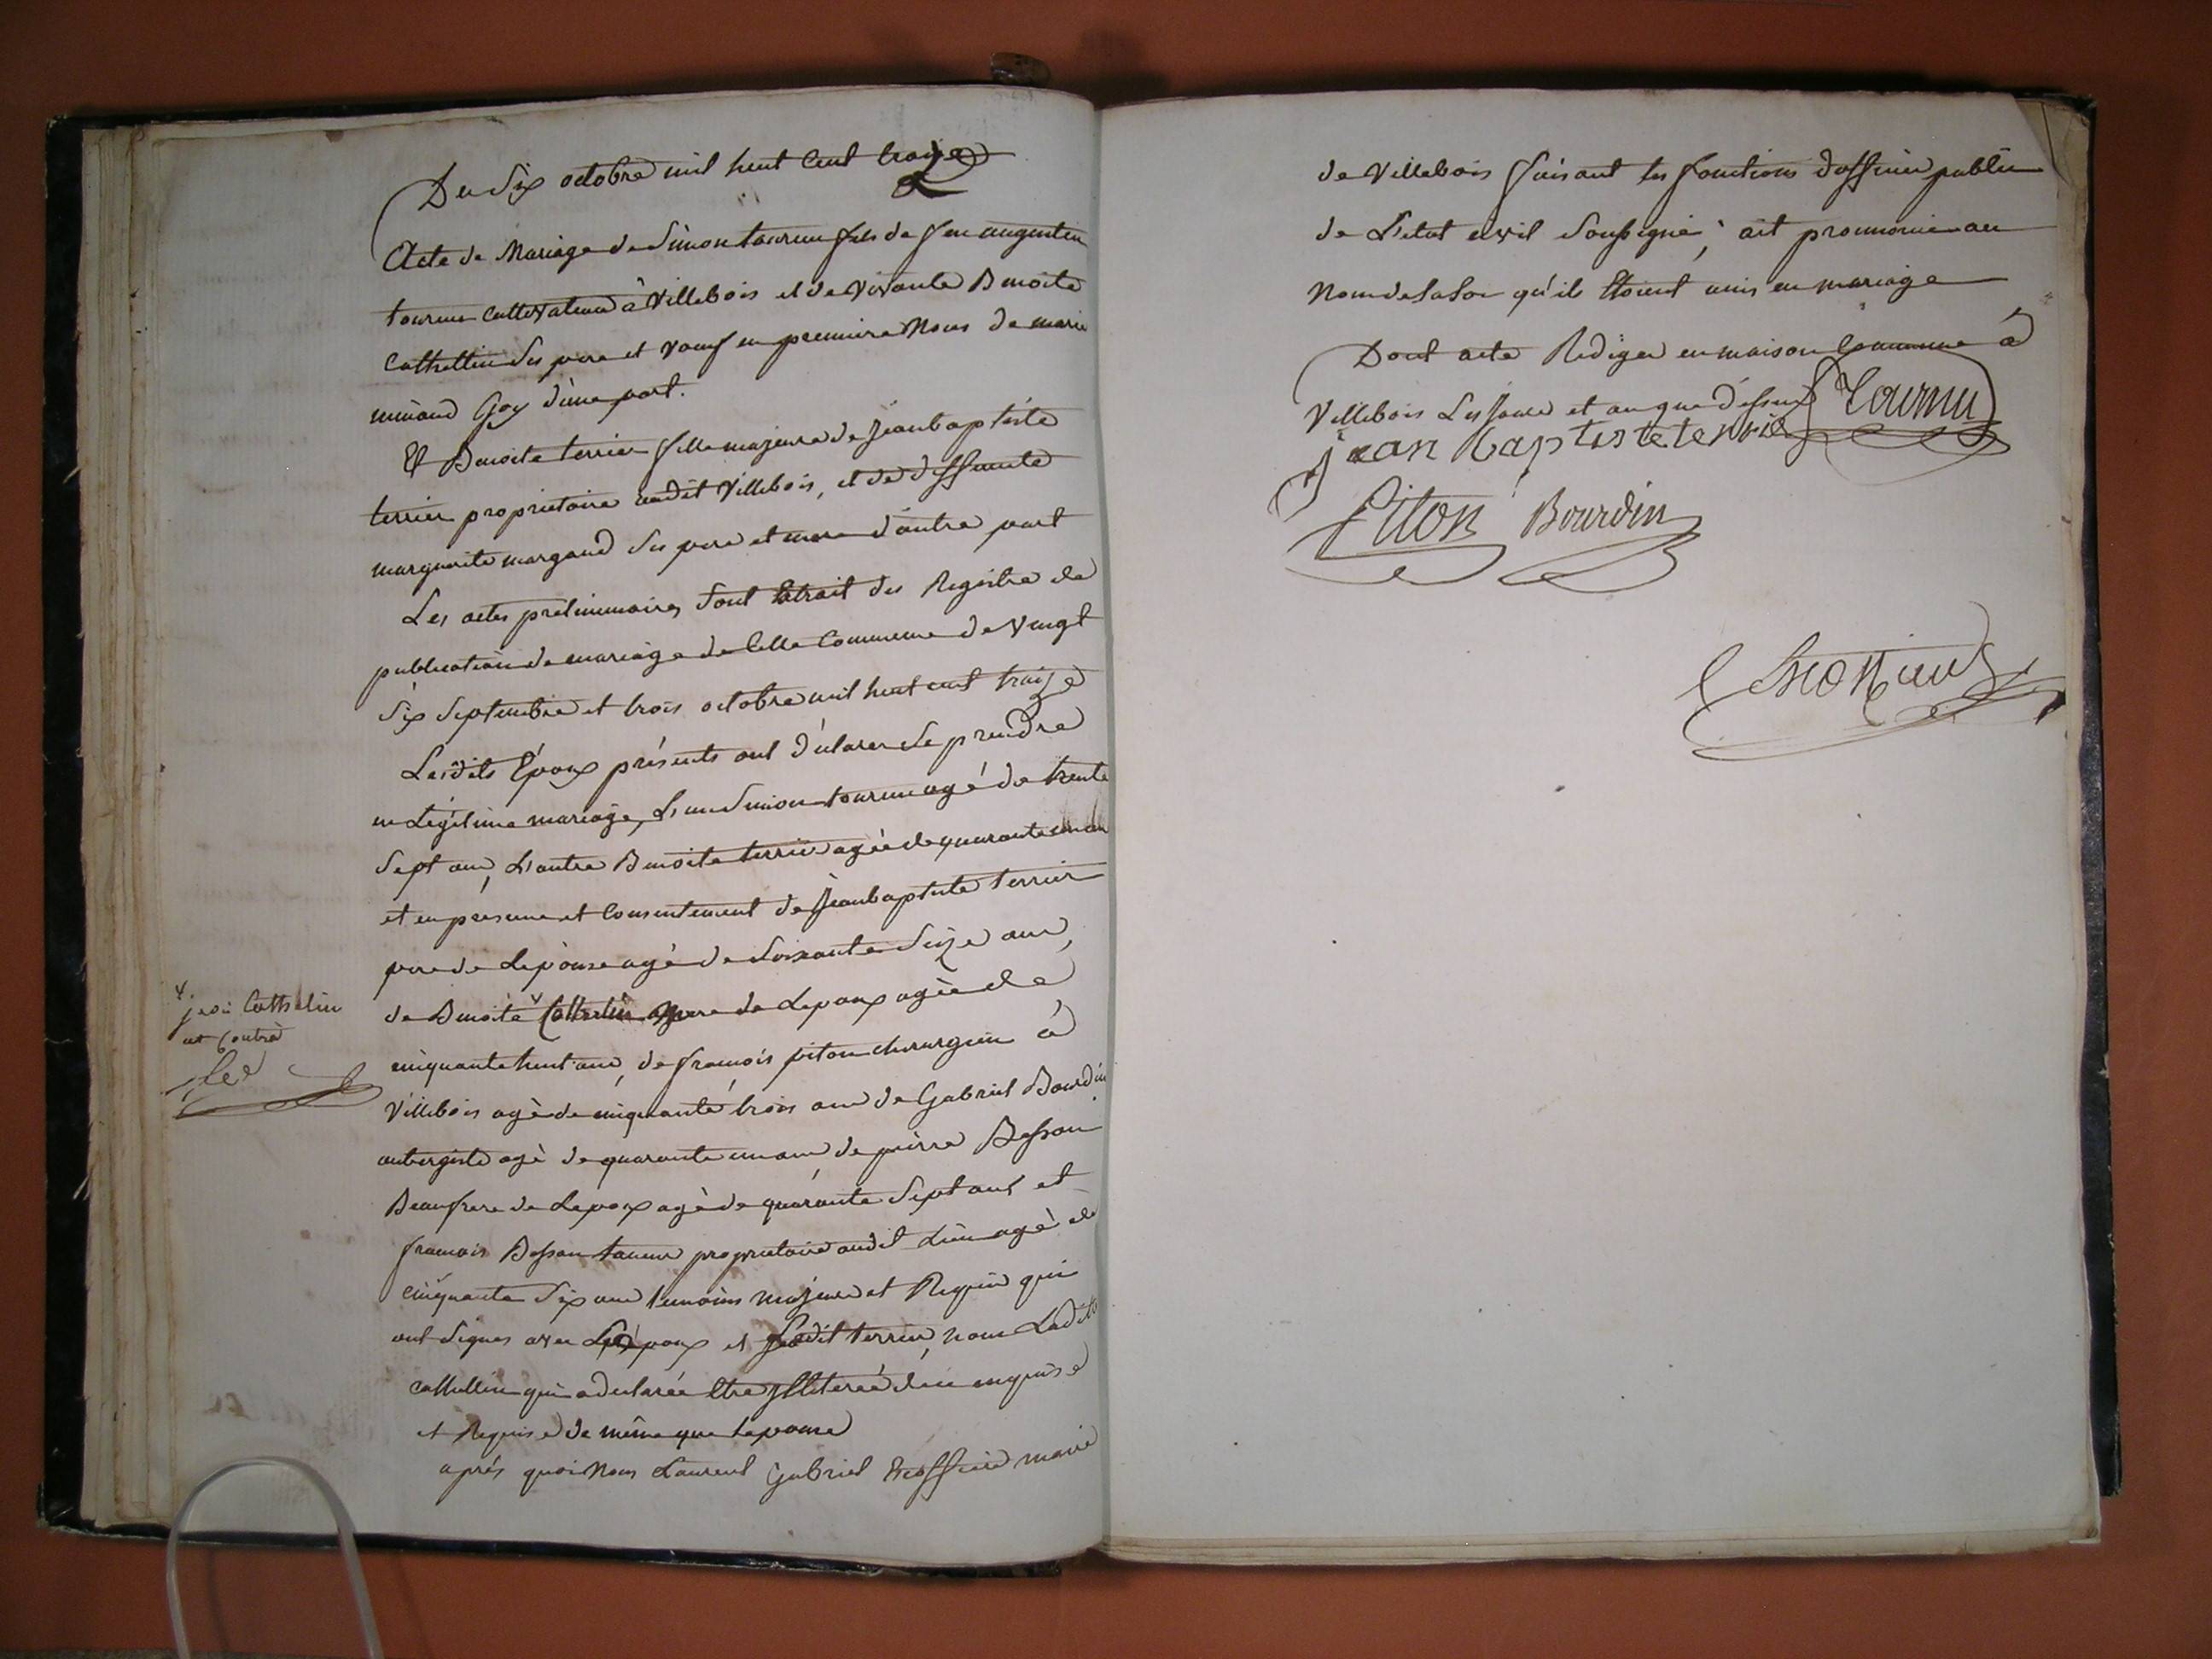 Du Six octobre mil huit Cent treize
Acte de Mariage de Simon tournu fils de feu augustin
tournu Cultivateur à Villebois et de Vivante Benoite
Cathellin ses pere et veuf en premiere Noces de marie
Goy d'une part.
Et Benoite terrier fille majeure de jeanbaptiste
terrier proprietaire audit Villebois, et de deffunte
marguerite margand ses pere et mere d'autre part
Les actes preliminaires Sont Extrait des Registre de
publication de mariage de Celle Commune de Vingt
Six Septembre et trois octobre mil huit cent traize
Lesdits Époux présents ont déclarer Se prendre
en Légitime mariage, L'un Simon tournu agé de trente
Sept ans, L'autre Benoite terrier agée de quarante un an
et en presence et Consentement de jeanbaptiste terrier
pere de Lepouse agé de Soixante Seize ans,
de Benoite Cathelin mere de Lepoux agée de
cinquante huit ans, de françois piton chirurgien à
Villebois agé de cinquante trois ans de Gabriel Bourdin
aubergiste agé de quarante un ans de pierre Besson
Beaufrere de Lepoux agé de quarante Sept ans et
francois Besson proprietaire audit Lieu agé de
Cinquante Six ans temoins majeurs et Requis qui
ont Signes avec Lepoux et Ledit terrier, non Ladite
Cathellin qui a declarée Etre jlliterée de ce enquise
et Requise de même que Lepouse
après quoi Nous Laurent Gabriel maire
jean Cathelin
de Villebois faisant les fonctions dofficier public
de L'etat civil Soussigné, ait prononcé au
Nom de la Loi qu'ils Etoient unis en mariage
Dont acte Rediger en maison Commune à
Villebois Les jours et an que dessus Tournu
jean baptiste terrier
Piton Bourdin